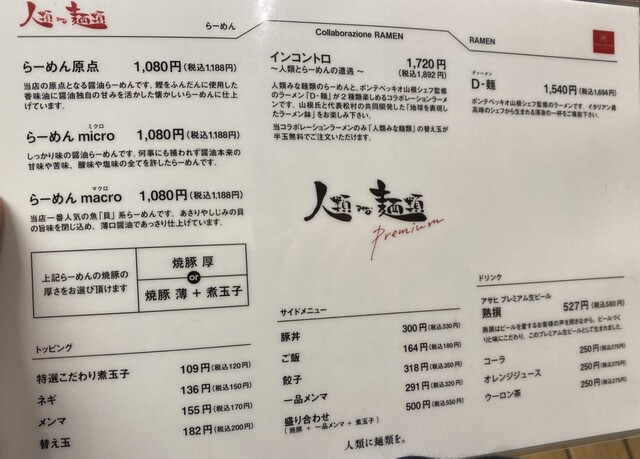 人類みな麺類
らーめん
らーめん原点 1,080円(税込1,188円)
当店の原点となる醤油らーめんです。鰹をふんだんに使用した
香味油に醤油独自の甘みを活かした懐かしいらーめんに仕上
げています。
ミクロ
らーめん micro 1,080円(税込1,188円)
しっかり味の醤油らーめんです。何事にも捕われず醤油本来の
甘味や苦味、酸味や塩味の全てを許したらーめんです。
マクロ
らーめん macro 1,080円(税込1,188円)
当店一番人気の魚「貝」系らーめんです。あさりやしじみの貝
の旨味を閉じ込め、薄口醤油であっさり仕上げています。
上記らーめんの焼豚の
厚さをお選び頂けます
焼豚 厚
or
焼豚 薄 + 煮玉子
トッピング
特選こだわり煮玉子 109円(税込120円)
ネギ 136円(税込150円)
メンマ 155円(税込170円)
替え玉 182円(税込200円)
Collaborazione RAMEN
インコントロ 1,720円
(税込1,892円)
〜人類とらーめんの遭遇〜
人類みな麺類のらーめんと、ポンテベッキオ山根シェフ監修
のラーメン「D-麺」が2種類楽しめるコラボレーションラー
メンです。山根氏と代表松村の共同開発した「地球を表現し
たラーメン鉢」をお楽しみ下さい。
当コラボレーションラーメンのみ「人類みな麺類」の替え玉が
半玉無料でご注文いただけます。
人類みな麺類
Premium
サイドメニュー
豚丼 300円(税込330円)
ご飯 164円(税込180円)
餃子 318円(税込350円)
一品メンマ 291円(税込320円)
盛り合わせ 500円(税込550円)
(焼豚 + 一品メンマ + 煮玉子)
人類に麺類を。
RAMEN
ディーメン
D-麺 1,540円(税込1,694円)
ポンテベッキオ山根シェフ監修のラーメンです。イタリアン最
高峰のシェフから生まれる渾身の一杯をご堪能下さい。
ドリンク
アサヒ プレミアム生ビール
熟撰 527円(税込580円)
熟撰はビールを愛するお客様の声を聞きながら、ビールづく
りと味にこだわり、このプレミアム生ビールとして生まれました。
コーラ 250円(税込275円)
オレンジジュース 250円(税込275円)
ウーロン茶 250円(税込275円)